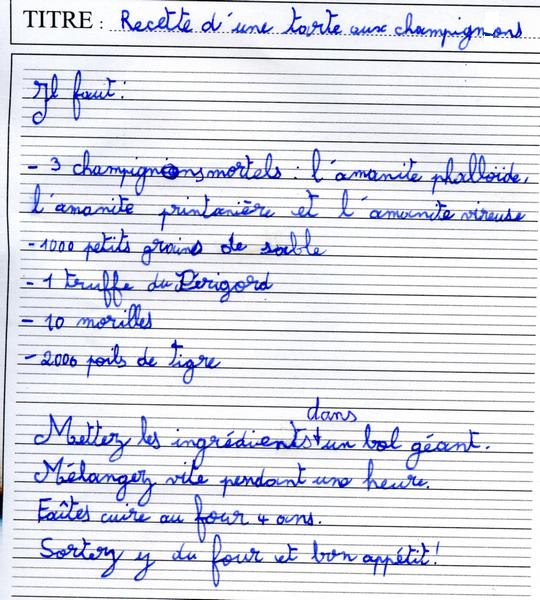 TITRE : Recette d'une tarte aux champignons
Il faut :
- 3 champignons mortels : l'amanite phalloïde,
l'amanite printanière et l'amanite vireuse
- 1000 petits grains de sable
- 1 truffe du Périgord
- 10 morilles
- 2000 poils de tigre
dans
Mettez les ingrédients + un bol géant.
Mélangez vite pendant une heure.
Faîtes cuire au four 4 ans.
Sortez y du four et bon appétit !